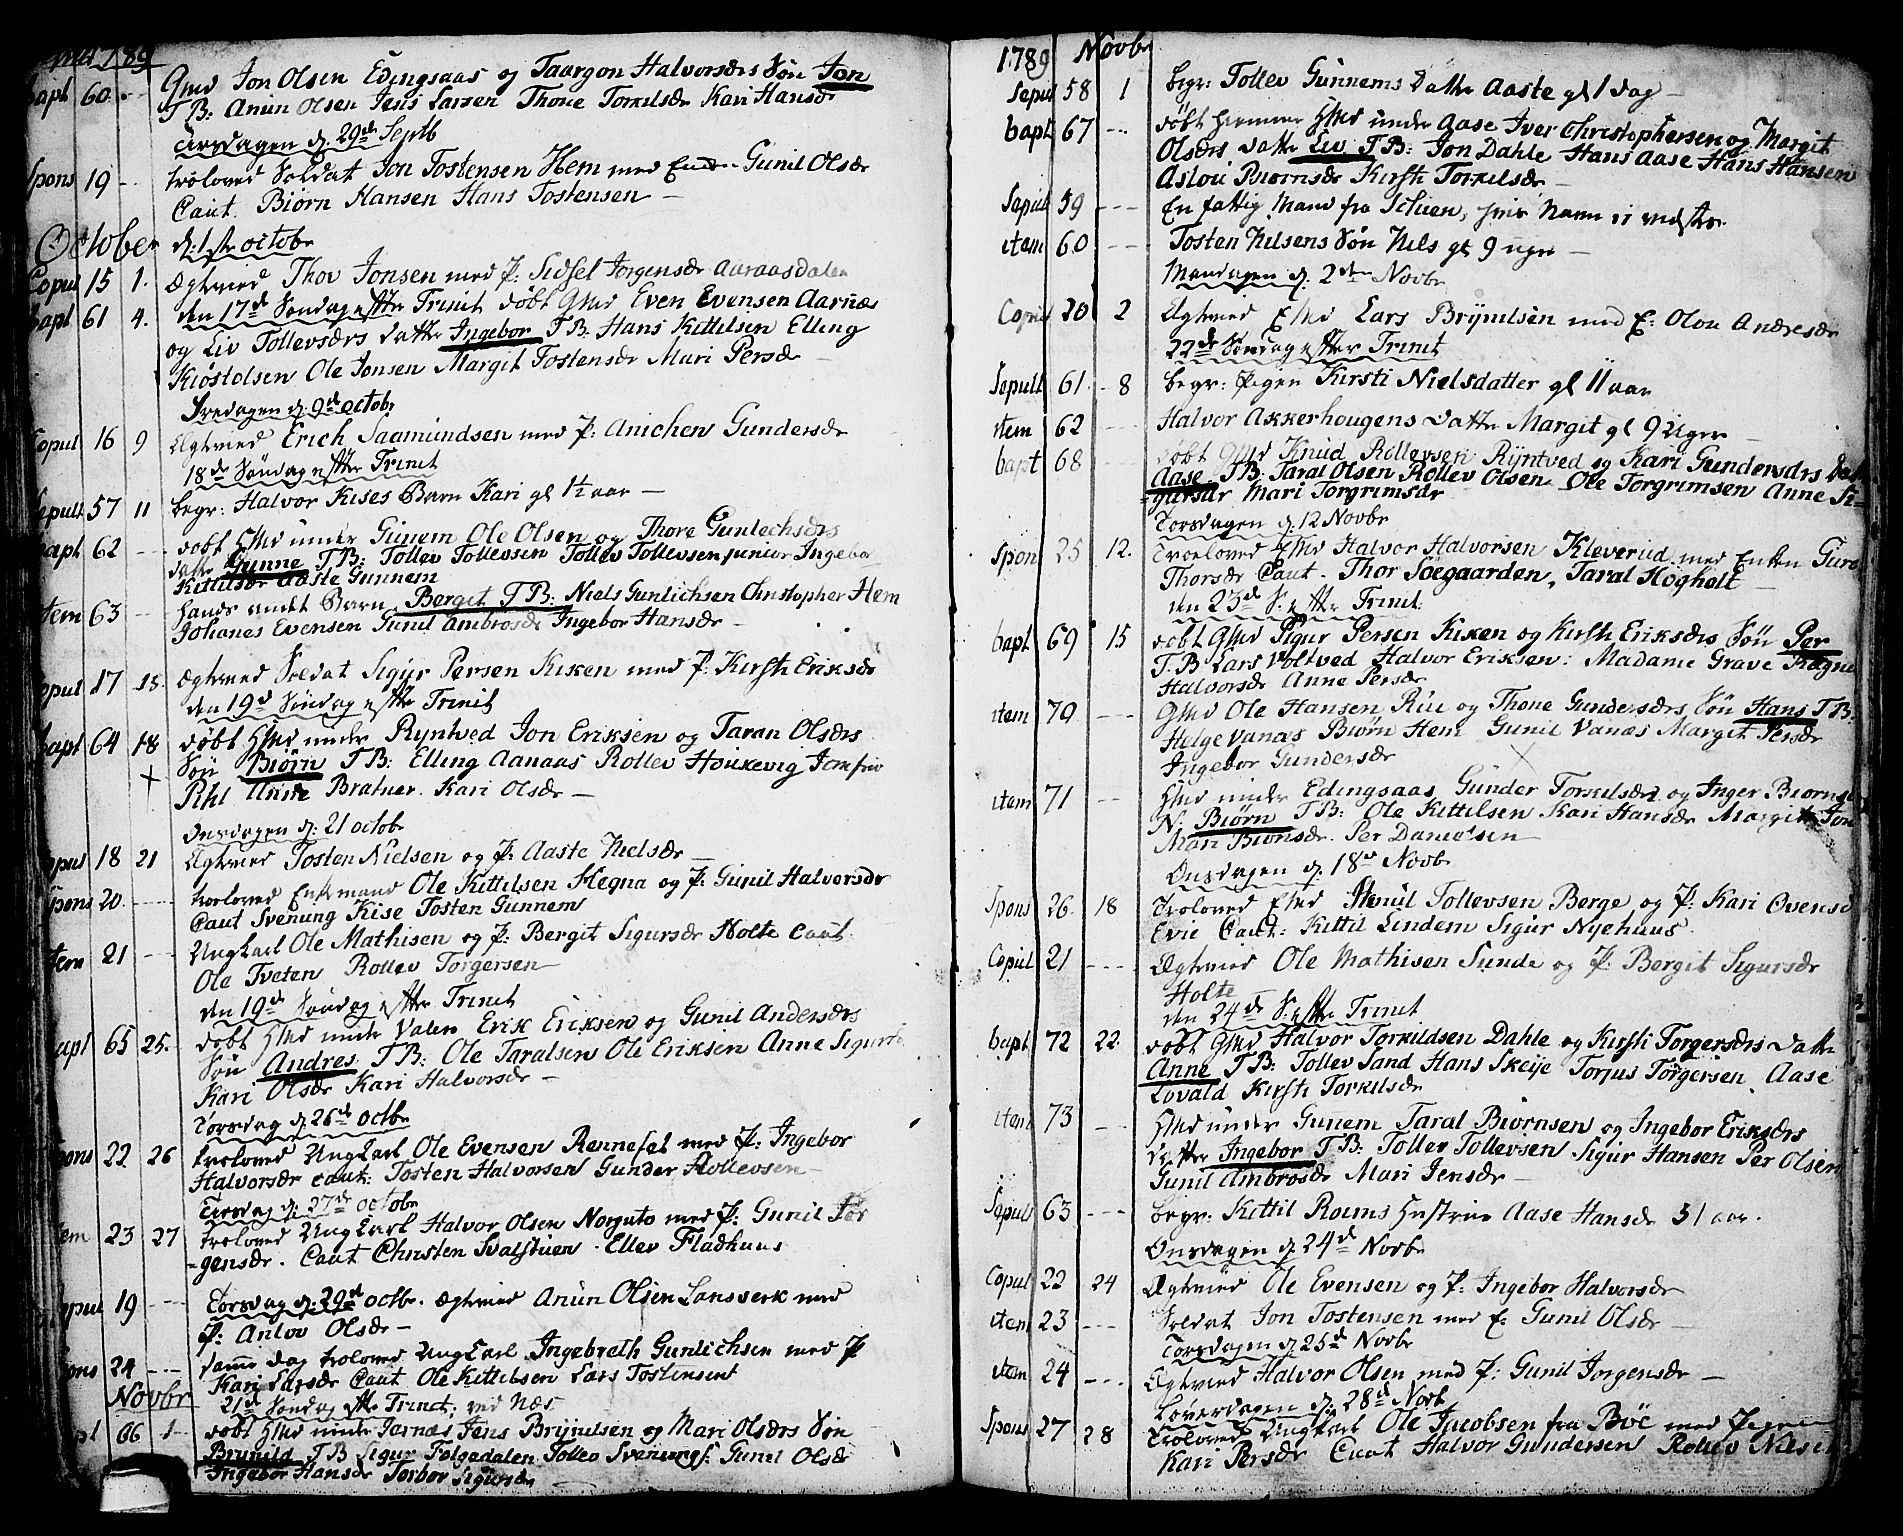 1789
bapt 60 -- Gmd Jon Olsen Edingsaas og Taargon Halvorsdrs Søn Jon
T B: Anun Olsen Jens Larsen Thone Torkilsdr Kari Hansdr
Tirsdagen d. 29de Septb
Spons 19 - troloved Soldat Jon Tostensen Hem med Enke Gunil Olsdr
Caut. Biørn Hansen Hans Tostensen
October d: 1ste octobr
Copul 15 1. Ægtevied Thov Jonsen med P: Sidsel Jorgensdr Aaraasdalen
bapt 61 4. den 17de Søndag efter Trinit døbt Gmd Even Evensen Aarnæs
og Liv Tollevsdrs datter Ingebor T B: Hans Kittilsen Elling
Kiøstolsen Ole Jonsen Margit Tostensdr Mari Persdr
Fredagen d. 9de octobr
Copul 16 9 Ægtevied Erich Saamundsen med P: Anichen Gundersdr
18de Søndag efter Trinit
Sepult 57 11 begr: Halvor Kises Barn Kari gl 1½ aar
bapt 62 --- døbt Hmd under Gunem Ole Olsen og Thore Gunlechsdrs
datter Gunne T B: Tollev Tollevsen Tollev Tollevsen junior Ingebor
Kittilsdr Aaste Gunnem
item 63 -- hands andet Barn Bergit T B: Niels Gunlichsen Christopher Hem
Johanes Evensen Gunil Ambrosdr Ingebor Hansdr
Copul 17 18 Ægtevied Soldat Sigur Persen Kisen med P: Kirsti Eriksdr
den 19de Søndag efter Trinit
bapt 64 18 døbt Hmd under Ryntved Jon Eriksen og Taran Olsdrs
Søn Biørn T B: Elling Aanaas Rollev Houkevig Jomfru
Rhl Anne Bratner. Kari Olsdr
Onsdagen d: 21 octobr
Copul 18 21 Ægtevied Tosten Nielsen og P: Aaste Nielsdr
Spons 20. ---- troloved Enkemand Ole Kittilsen Hegna og P: Gunil Halvorsdr
Caut Svenung Kise Tosten Gunnem
item 21 --- Ungkarl Ole Mathisen og P: Bergit Sigursdr Holte Caut:
Ole Tveten Rollev Torgersen
den 19de Søndag efter Trinit
bapt 65 25. døbt Hmd under Valen Erik Eriksen og Gunil Andersdrs
Søn Andres T B: Ole Taralsen Ole Eriksen Anne Sigursdr
Kari Olsdr Kari Halvorsdr
Torsdag d. 26de octbr
Spons 22 26 troloved Ungkarl Ole Evensen Renneset med P: Ingebor
Halvorsdr caut: Tosten Halvorsen Gunder Rollevsen
Tirsdag d: 27de octobr
item 23 27 troloved Ungkarl Halvor Olsen Norguto med P: Gunil Jør
=gensdr. Caut Christen Svalstuen. Ellev Fladhuus
Copul 19 --- Torsdag d. 29de octbr. Ægtevied Anun Olsen Lansverk med
P: Anlov Olsdr
Spons 24 --- samme dag troloved Ungkarl Ingebreth Gunlichsen med P
Kari Larsdr Caut Ole Kittilsen Lars Tostensen
Novbr 21de Søndag efter Trinit; ved Næs
bapt 66 1- døbt Hmd under Jernæs Jens Brynulsen og Mari Olsdrs Søn
Brunild T B Sigur Folgedalen Tollev Svenungs: Gunil Olsdr
Ingebor Hansdr Torbor Sigursdr
1789 Novbr
Sepul 58 1 begr: Tollev Gunnems datter Aaste gl 1 dag
bapt 67 --- døbt hiemme Hmd under Aase Iver Christophersen og Margit
Olsdrs datter Liv T B: Jon Dahle Hans Aase Hans Hansen
Aslou Biørnsdr Kirsti Torkilsdr
Sepul 59 --- En fattig Mand fra Schien, hvis Navn ei vidstes
item 60 --- Tosten Nilsens Søn Nils gl 9 uger
Mandagen d: 2den Novbr
Copul 20 2 Ægtevied Eskd Lars Brynulsen med E: Olou Andresdr
22de Søndag efter Trinit
Sepult 61 - 8 begr: Pigen Kirsti Nielsdatter gl 11 aar
item 62 --- Halvor Akkerhougens datter Margit gl 9 Uger
bapt 68 --- døbt Gmd Knud Rollevsen Ryntved og Kari Gundersdrs dat
Aase T B: Taral Olsen Rollev Olsen Ole Torgrimsen Anne Si-
=gursdr Mari Torgrimsdr
Torsdagen d. 12 Novbr
Spon 25 12. Troeloved Eskd Halvor Halvorsen Kleverud med Enken Guro
Thorsdr Caut. Thor Søegaarden, Taral Høgholt
den 23de S. efter Trinit:
bapt 69 15 døbt Gmd Sigur Persen Kisen og Kirsti Eriksdrs Søn Per
T B Lars Voltved Halvor Eriksen: Madame Grave Ragne
Halvorsdr Anne Persdr
item 79 --- Gmd Ole Hansen Riu og Thone Gundersdrs Søn Hans T B:
Helge Vanæs Biørn Hem Gunil Vanæs Margit Persdr
Ingebor Gundersdr
item 71 -- Hmd under Edingsaas Gunder Torkilsen og Inger Biørnsdr
N: Biørn T B: Ole Kittilsen Kari Hansdr Margit Jon
Mari Biørnsdr. Per Danielsen
Onsdagen d. 18de Novbr
Spons 26. 18 Troloved Eskd Stenul Tollevsen Berge og P: Kari Ovensd
Evie Caut: Kittil Lindem Sigur Nyehuus
Copul 21 ---- Ægtevied Ole Mathisen Sunde og P: Bergit Sigursdr
Holte
den 24de S. efter Trinit
bapt 72 22. døbt Gmd Halvor Torkildsen Dahle og Kirsti Torgersdrs datter
Anne T B: Tollev Sand Hans Skeije Torjus Torgersen Aase
Lovald Kirsti Torkilsdr
item 73 --- Hmd under Gunem Taral Biørnsen og Ingebor Eriksdrs
datter Ingebor T B: Tollev Tollevsen Sigur Hansen Per Olsen
Gunil Ambrosdr Mari Jensdr
Sepul 63 --- begr: Kittil Roims Hustrue Aase Hansdr 51 aar.
Onsdagen d. 24de Novbr
Copul 22 24 Ægtevied Ole Evensen og P: Ingebor Halvorsdr
item 23 --- Soldat Jon Tostensen med E: Gunil Olsdr
Torsdagen d. 25de Novbr
item 24 --- Ægtevied Halvor Olsen med P: Gunil Jorgensdr
Løverdagen d. 28de Novb
Spons 27 28 Troloved Ungkarl Ole Jacobsen fra Bøe med Pigen
Kari Persdr Caut Halvor Gundersen Rollev Nilsen